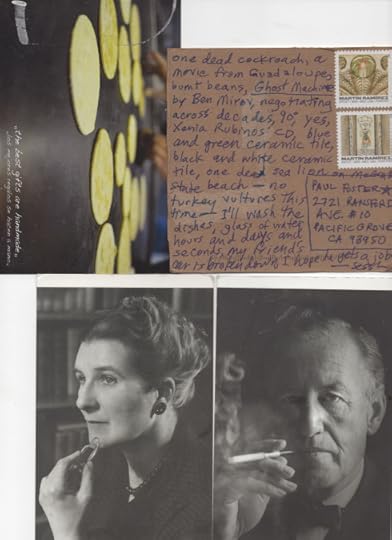 „the best gifts are handmade."
one dead cockroach, a
movie from Guadaloupe,
burnt beans, Ghost Machine
by Ben Mirov, negotiating
across decades, 90° yes,
Xenia Rubinos' CD, blue
and green ceramic tile,
black and white ceramic
tile, one dead sea lion on
state beach – no
turkey vultures this
time – I'll wash the
dishes, glass of water
hours and days and
seconds, my friend's
car is broken down, I hope he gets a job
MARTÍN RAMÍREZ
MARTÍN RAMÍREZ
PAUL FOSTER
2721 RANSFORD
AVE. #10
PACIFIC GROVE
CA 93950